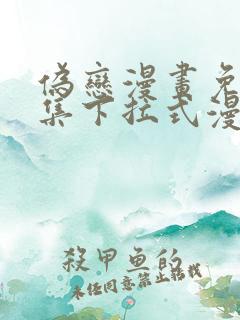 偽戀漫畫免
集下拉式漫
殺甲魚的
未經同意禁止轉載